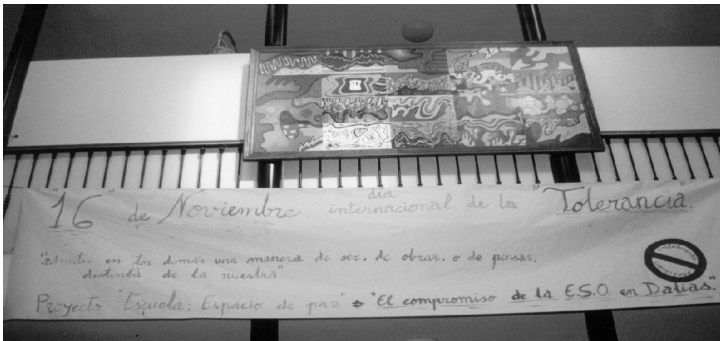 "16" de Noviembre dia internacional de la "Tolerancia".
"Admitir en los demas una manera de ser, de obrar, o de pensar,
distinta de la nuestra"
Proyecto "Escuela: Espacio de paz" → "El compromiso de la E.S.O. en Dalías."